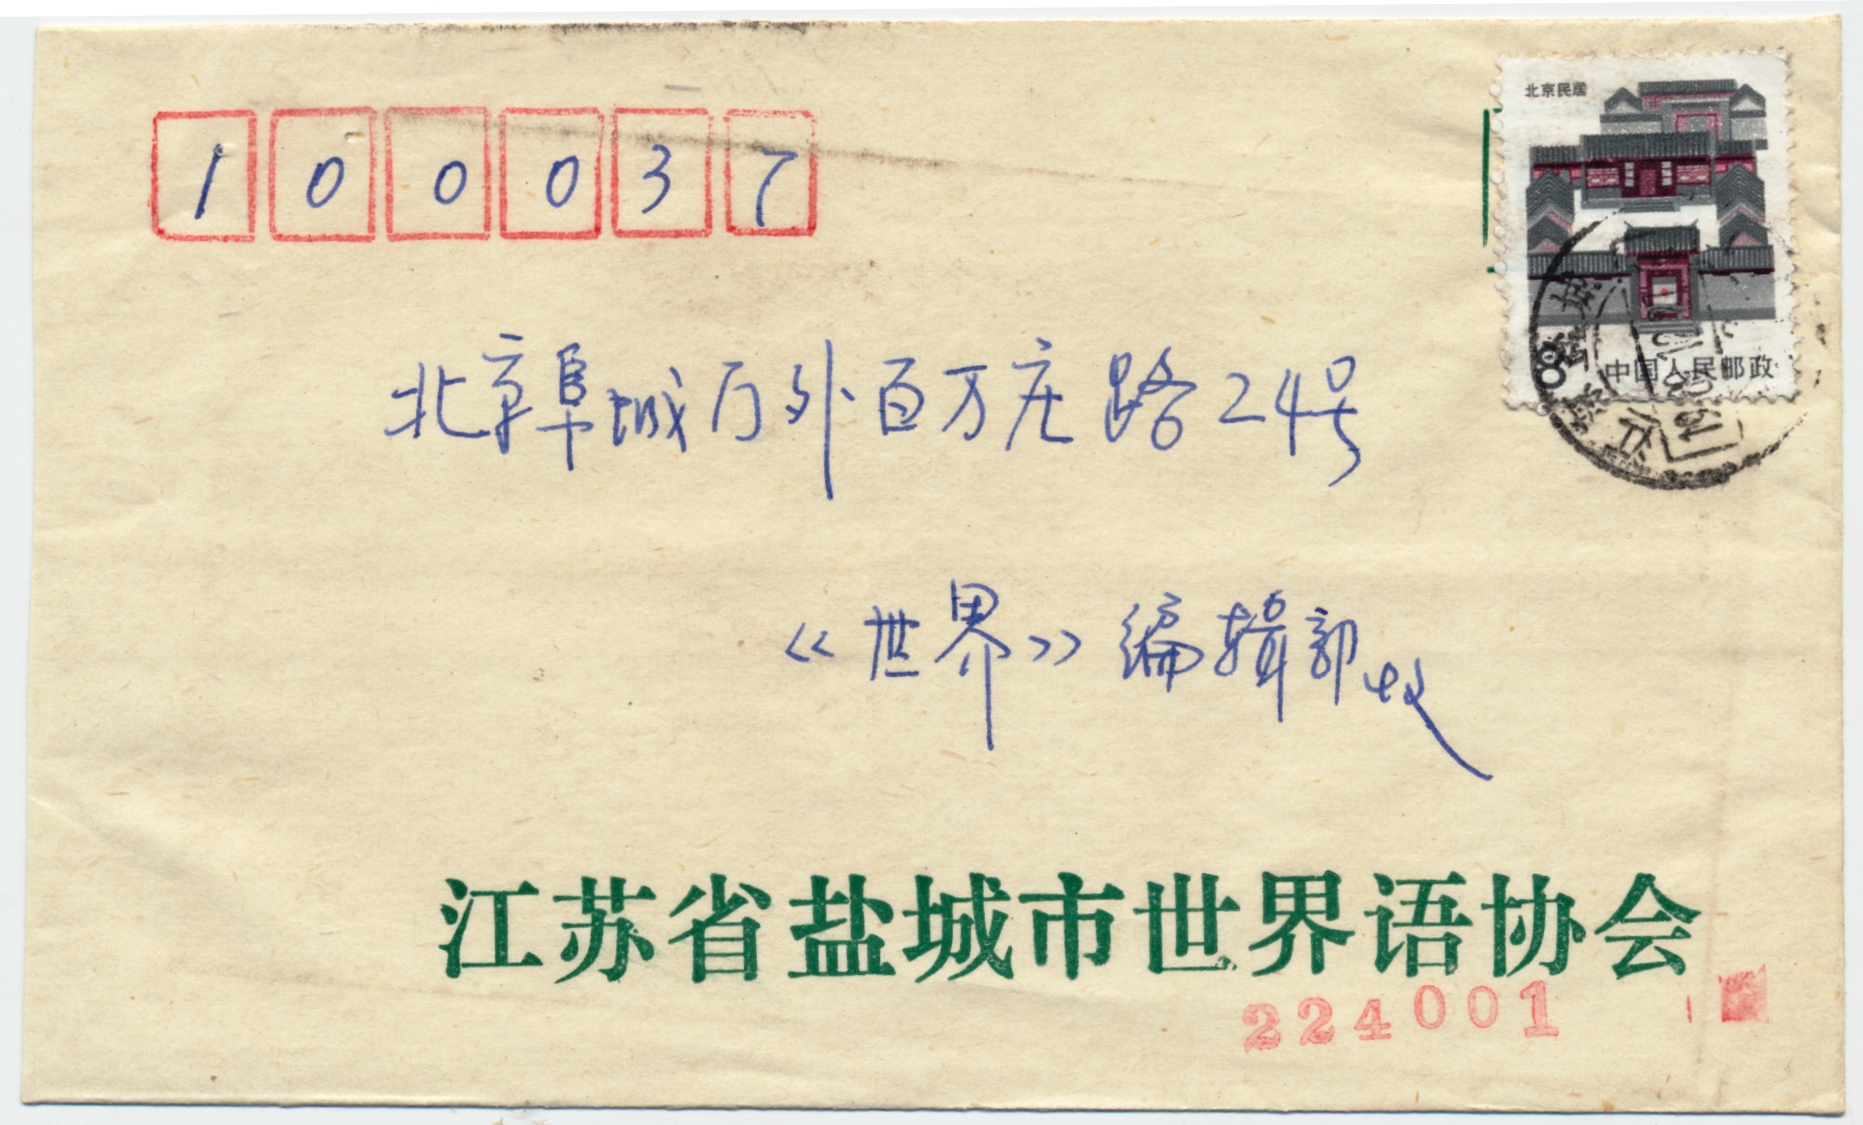 100037
北京民居
8 中国人民邮政
江苏 盐城
北京阜城门外百万庄路24号
《世界》编辑部收
江苏省盐城市世界语协会
224001